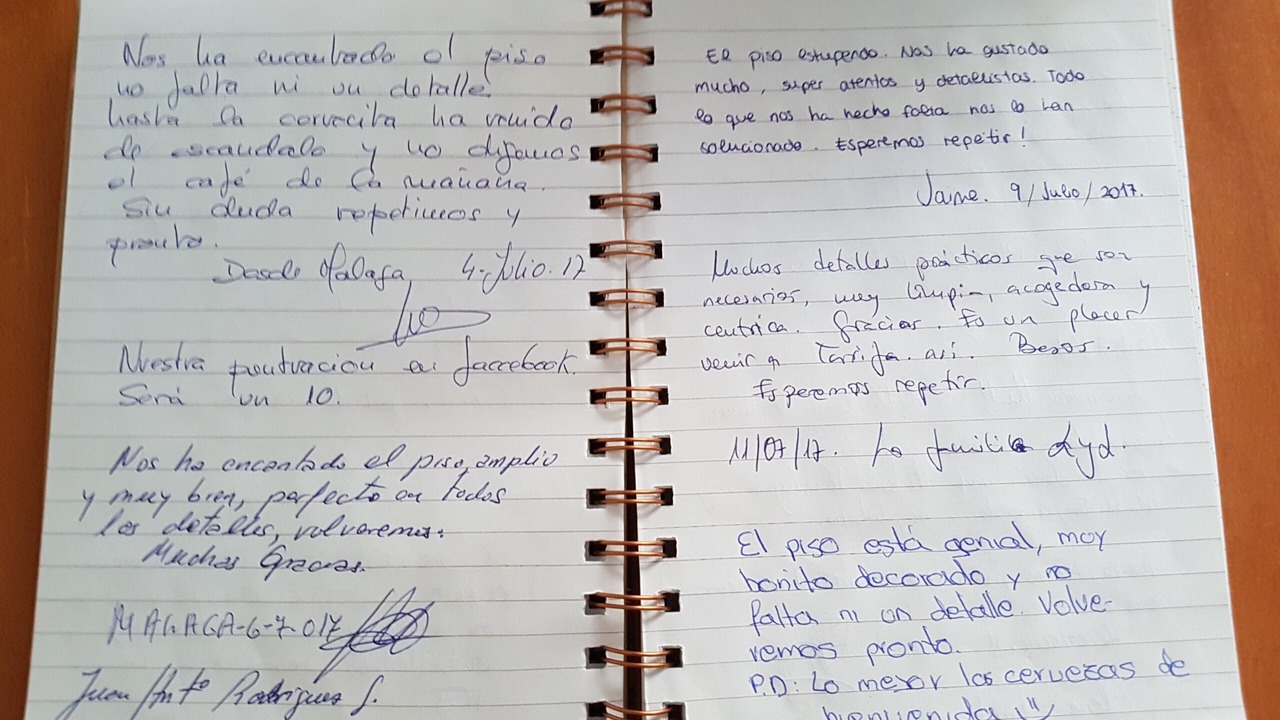 Nos ha encantado el piso
no falta ni un detalle.
hasta la cervecita ha venido
de escandalo y no digamos
el café de la mañana.
Sin duda repetimos y
pronto.
Desde Malaga 4-Julio.17
Nuestra puntuación en faccebook.
Será un 10.
Nos ha encantado el piso, amplio
y muy bien, perfecto en todos
los detalles, volveremos.
Muchas Gracias.
MALAGA-6-7-017
Juan Anto Rodriguez S.
El piso estupendo. Nos ha gustado
mucho, super atentos y detallistas. Todo
lo que nos ha hecho falta nos lo han
solucionado. Esperemos repetir!
Jaime. 9/Julio/2017.
Muchos detalles prácticos que son
necesarios, muy limpia, acogedora y
centrica. Gracias. Es un placer
venir a Tarifa así. Besos.
Esperemos repetir.
11/07/17. La familia
El piso está genial, muy
bonito decorado y no
falta ni un detalle. Volve-
remos pronto.
P.D: Lo mejor las cervezas de
bienvenida